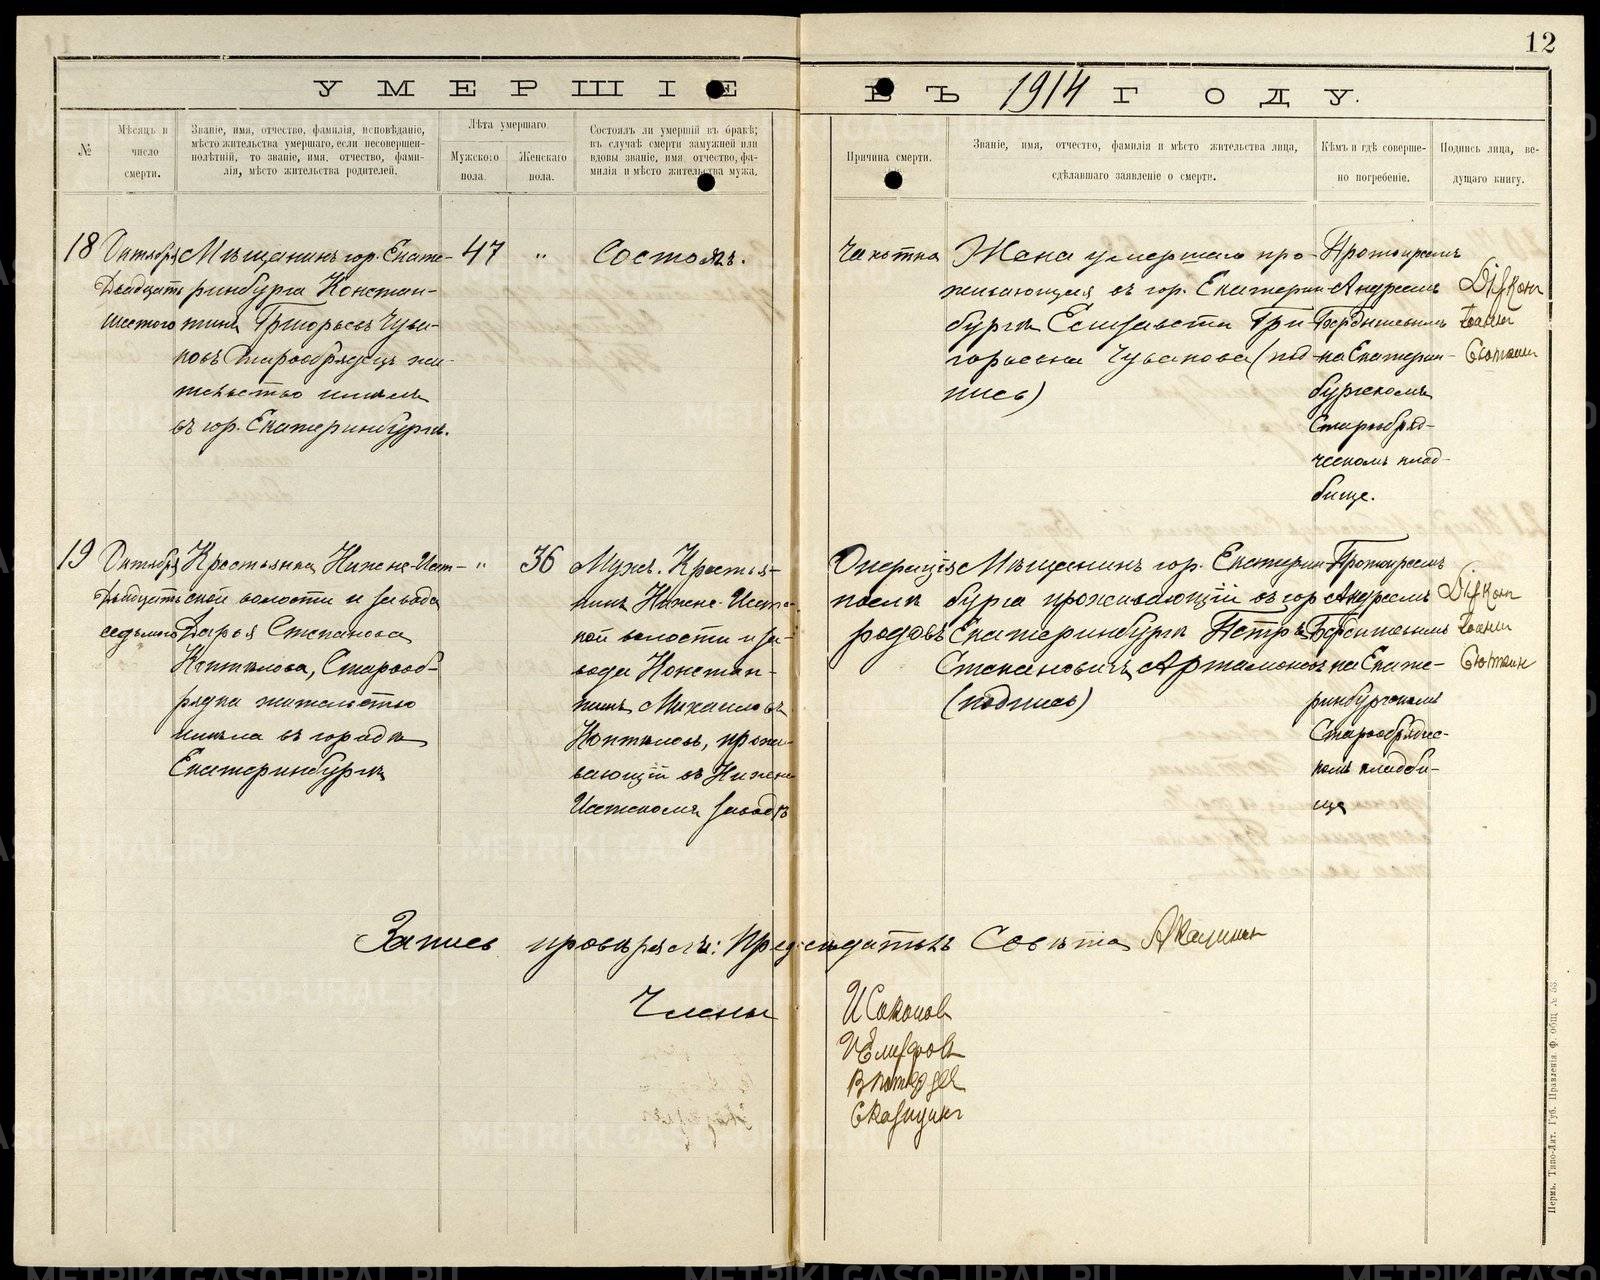 12
УМЕРШІЕ ВЪ 1914 ГОДУ.
№
Мѣсяцъ и
число
смерти.
Званіе, имя, отчество, фамилія, исповѣданіе,
мѣсто жительства умершаго, если несовершен-
нолѣтній, то званіе, имя, отчество, фами-
лія, мѣсто жительства родителей.
Лѣта умершаго.
Мужского
пола.
Женскаго
пола.
Состоялъ ли умершій въ бракѣ;
въ случаѣ смерти замужней или
вдовы званіе, имя отчество, фа-
милія и мѣсто жительства мужа.
Причина смерти.
Званіе, имя, отчество, фамилія и мѣсто жительства лица,
сдѣлавшаго заявленіе о смерти.
Кѣмъ и гдѣ соверше-
но погребеніе.
Подпись лица, ве-
дущаго книгу.
18
Октября
Двадцать
шестого
Мѣщанинъ гор. Екате-
ринбурга Констан-
тинъ Григорьевъ Чува-
ковъ Старообрядецъ жи-
тельство имѣлъ
въ гор. Екатеринбургѣ.
47
"
Состоялъ.
Чахотка
Жена умершаго про-
живающая въ гор. Екатерин-
бургѣ Елизавета Гри
горьевна Чувакова (под-
пись)
Протоіереемъ
Андреемъ
на Екатерин-
бургскомъ
Старообряд-
ческомъ клад-
бище.
Діяконъ
Іоаннъ
19
Октября
Двадцать
седьмого
Крестьянка Нижне-Исет-
ской волости и завода
Дарья Степанова
Коптѣлова, Старооб-
рядка жительство
имѣла въ городѣ
Екатеринбургѣ
"
36
Мужъ. Крестья-
нинъ Нижне-Исетс-
кой волости и за-
вода Констан-
тинъ Михаиловъ
Коптѣловъ, прожи-
вающій въ Нижне
Исетскомъ заводѣ
Операція
послѣ
родовъ
Мѣщанинъ гор. Екатерин-
бурга проживающій въ гор
Екатеринбургѣ Петръ
Степановичъ Артамоновъ
(подпись)
Протоіереемъ
Андреемъ
на Екате-
ринбургскомъ
Старообрядчес-
комъ кладби-
ще
Діяконъ
Іоаннъ
Запись провѣряли: Предсѣдатель Совѣта
Члены
И Соколовъ
Пермь. Типо-Лит. Губ. Правленія. Ф. общ. № 53.
METRIKI.GASO-URAL.RU